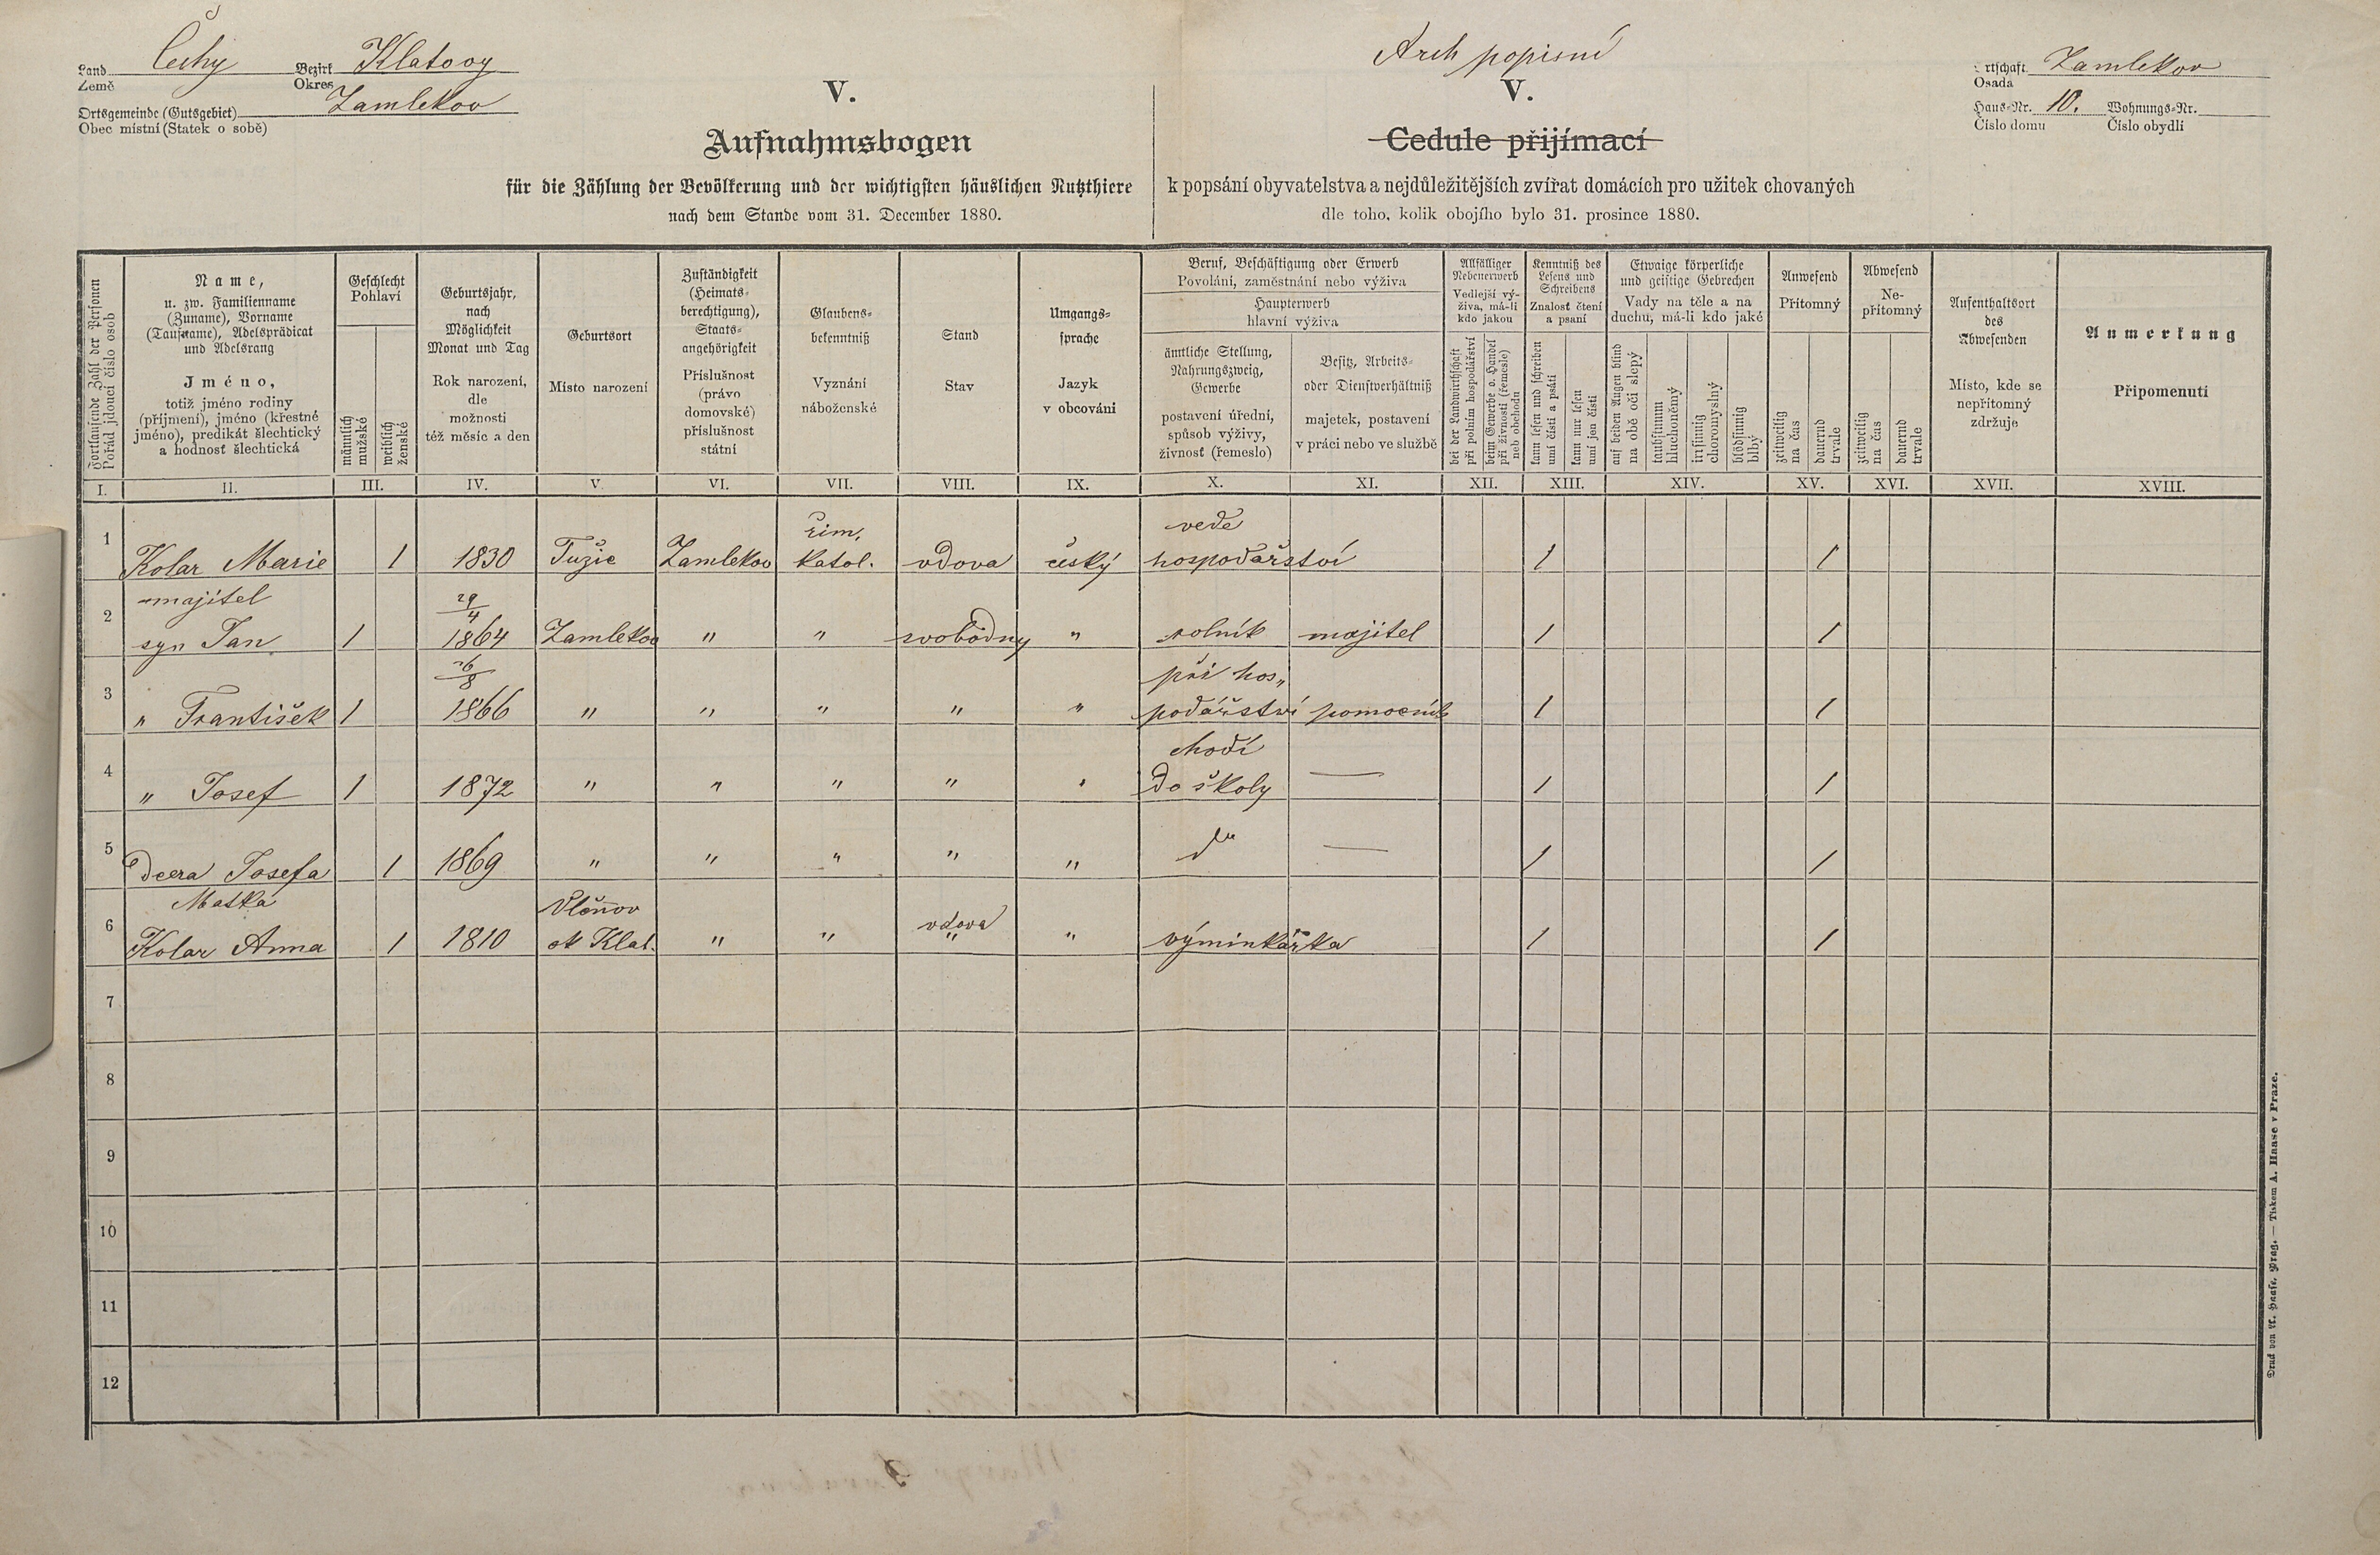 Land Čechy Bezirk Klatovy
Země Okres
Ortsgemeinde (Gutsgebiet) Zamlekov
Obec místní (Statek o sobě)
V.
Aufnahmsbogen
für die Zählung der Bevölkerung und der wichtigsten häuslichen Nutzthiere
nach dem Stande vom 31. December 1880.
Arch popisní
V.
Cedule přijímací
k popsání obyvatelstva a nejdůležitějších zvířat domácích pro užitek chovaných
dle toho, kolik obojího bylo 31. prosince 1880.
Ortschaft Zamlekov
Osada
Haus-Nr. 10. Wohnungs-Nr.
Číslo domu Číslo obydlí
Fortlaufende Zahl der Personen
Pořád jdoucí číslo osob
Name,
u. zw. Familienname
(Zuname), Vorname
(Taufname), Adelsprädicat
und Adelsrang
Jméno,
totiž jméno rodiny
(příjmení), jméno (křestné
jméno), predikát šlechtický
a hodnosť šlechtická
Geschlecht
Pohlaví
männlich
mužské
weiblich
ženské
Geburtsjahr,
nach
Möglichkeit
Monat und Tag
Rok narození,
dle
možnosti
též měsíc a den
Geburtsort
Místo narození
Zuständigkeit
(Heimats-
berechtigung),
Staats-
angehörigkeit
Příslušnost
(právo
domovské)
příslušnost
státní
Glaubens-
bekenntniß
Vyznání
náboženské
Stand
Stav
Umgangs-
sprache
Jazyk
v obcování
Beruf, Beschäftigung oder Erwerb
Povolání, zaměstnání nebo výživa
Haupterwerb
hlavní výživa
ämtliche Stellung,
Nahrungszweig,
Gewerbe
postavení úřední,
spůsob výživy,
živnosť (řemeslo)
Besitz, Arbeits-
oder Dienstverhältniß
majetek, postavení
v práci nebo ve službě
Allfälliger
Nebenerwerb
Vedlejší vý-
živa, má-li
kdo jakou
bei der Landwirthschaft
při polním hospodářství
beim Gewerbe o. Handel
při živnosti (řemesle)
neb obchodu
Kenntniß des
Lesens und
Schreibens
Znalosť čtení
a psaní
kann lesen und schreiben
umí čísti a psáti
kann nur lesen
umí jen čísti
Etwaige körperliche
und geistige Gebrechen
Vady na těle a na
duchu, má-li kdo jaké
auf beiden Augen blind
na obě oči slepý
taubstumm
hluchoněmý
irrsinnig
choromyslný
blödsinnig
blbý
Anwesend
Přítomný
zeitweilig
na čas
dauernd
trvale
Abwesend
Ne-
přítomný
zeitweilig
na čas
dauernd
trvale
Aufenthaltsort
des
Abwesenden
Místo, kde se
nepřítomný
zdržuje
Anmerkung
Připomenutí
I. II. III. IV. V. VI. VII. VIII. IX. X. XI. XII. XIII. XIV. XV. XVI. XVII. XVIII.
řim. vede
1 Kolar Marie 1 1830 Tužic Zamlekov katol. vdova český hospodařství 1 1
majitel 29/4
2 syn Jan 1 1864 Zamlekov " " svobodny " rolník majitel 1 1
26/8 při hos„
3 " František 1 1866 " " " " " podářství pomocník 1 1
chodí
4 " Josef 1 1872 " " " " " do školy — 1 1
5 dcera Josefa 1 1869 " " " " " — 1 1
Matka
6 Kolar Anna 1 1810 ok Klat. " " vdova " výminkářka 1 1
7
8
9
10
11
12
Druck von A. Haase, Prag. — Tiskem A. Haase v Praze.